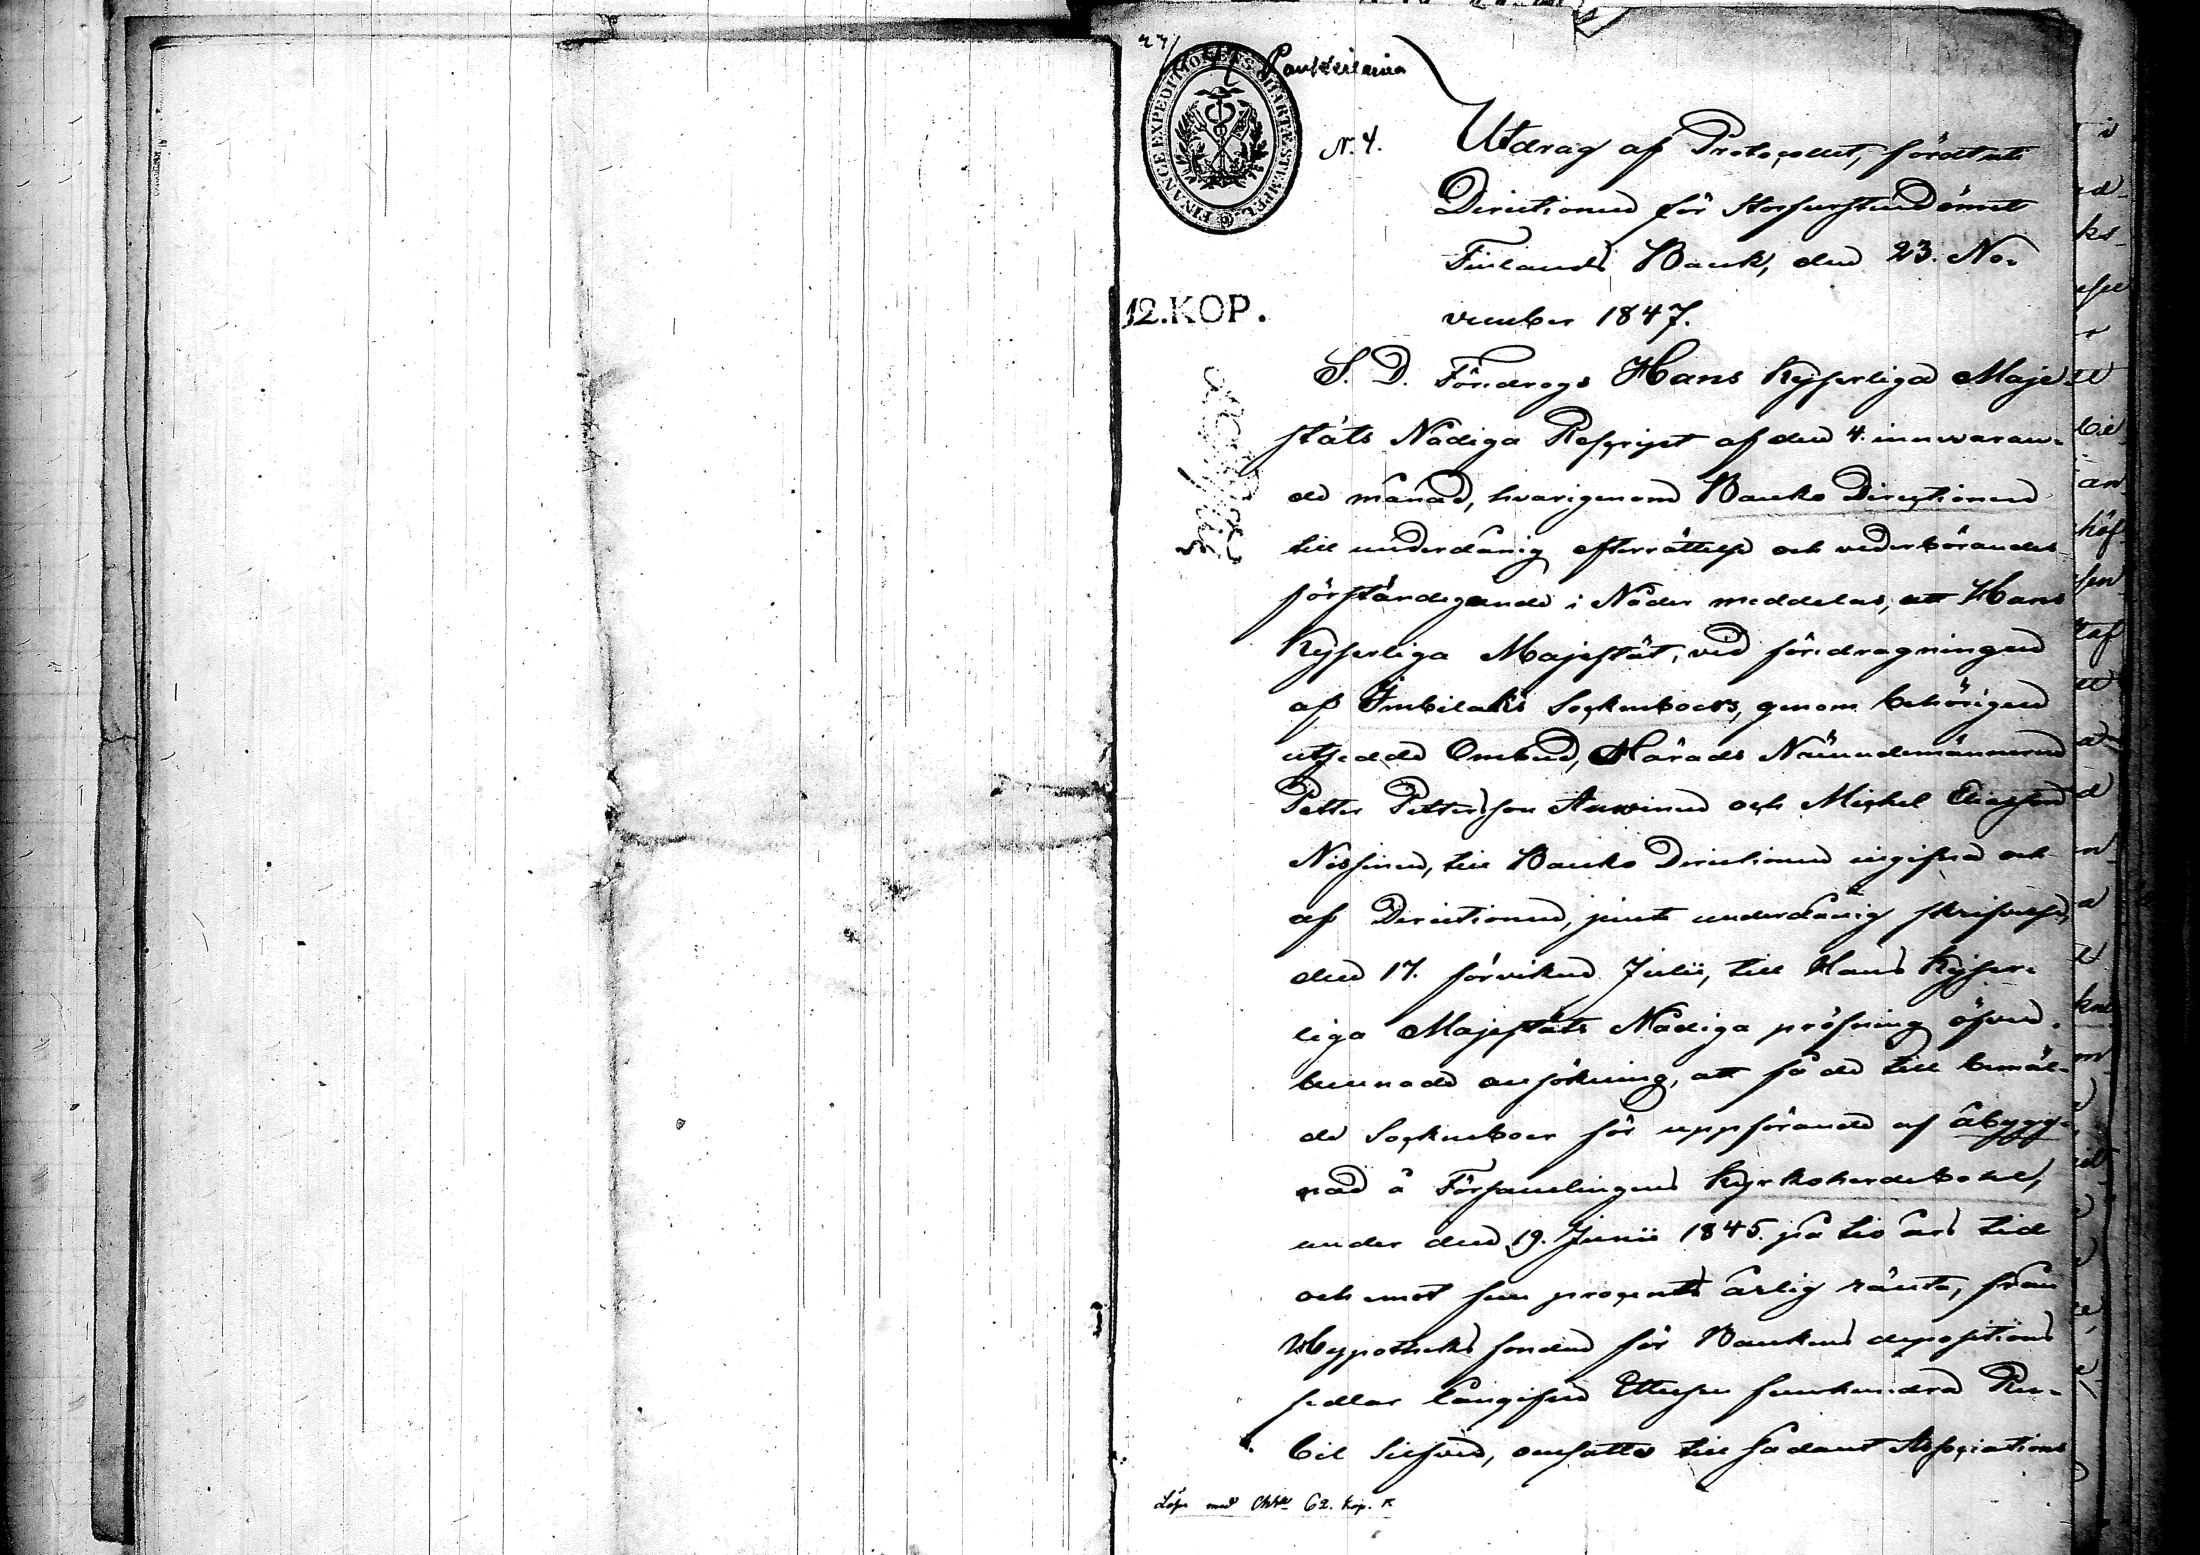 N. 4.
Utdrag af Protocollet, fördt uti
Directionen för Storfurstendömet
Finlands Bank, den 23. No-
vember 1847.
FINANCE EXPEDITIONENS CHARTÆ STEMPEL
12.KOP.
S. D. Föredrogs Hans Kejserliga Maje-
stäts Nådiga Rescript af den 4. innevaran-
de månad, hvarigenom Banko Directionen
till underdånig efterrättelse och vederbörandes
förständigande i Nåder meddelas, att Hans
Kejserliga Majestät, vid föredragningen
af Imbilaks Sockneboers, genom behörigen
utsedde Ombud, Härads Nämndemännerne
Petter Pettersson Auvinen och Michel Eliasson
Nissinen, till Banko Directionen ingifna och
af Directionen, jemte underdånig skrifvelse,
den 17. förvikne Julii, till Hans Kejser-
liga Majestäts Nådiga pröfning öfver-
lemnade ansökning, att få de till bemäl-
de Sockneboer för uppförande af åbygg-
nad å Församlingens Kyrkoherdebohl,
under den 19. Junii 1845. på tio års tid
och emot fem procents årlig ränta, från
Hypotheks fonden för Bankens depositions
sedlar långifne Ettusen femhundra Ru-
bel Silfver, omsatte till sådant Associations
Lösn med Chtæ 62. kop.